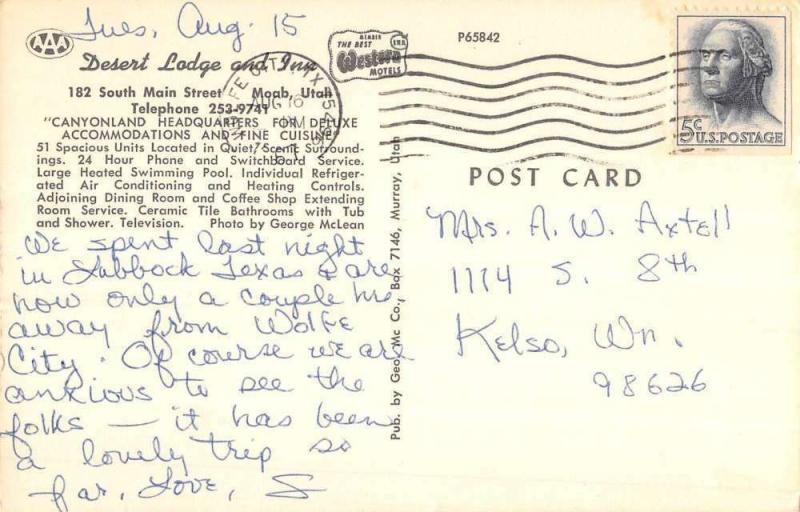 Tues, Aug. 15
AAA
Desert Lodge and Inn
182 South Main Street Moab, Utah
Telephone 253-9741
"CANYONLAND HEADQUARTERS FOR DELUXE
ACCOMMODATIONS AND FINE CUISINE"
51 Spacious Units Located in Quiet, Scenic Surround-
ings. 24 Hour Phone and Switchboard Service.
Large Heated Swimming Pool. Individual Refriger-
ated Air Conditioning and Heating Controls.
Adjoining Dining Room and Coffee Shop Extending
Room Service. Ceramic Tile Bathrooms with Tub
and Shower. Television. Photo by George McLean
We spent last night
in Lubbock Texas & are
now only a couple hrs
away from Wolfe
City. Of course we are
anxious to see the
folks — it has been
a lovely trip so
far. Love, S
MEMBER
THE BEST
Western
MOTELS
P65842
5c U.S. POSTAGE
POST CARD
Pub. by Geo. Mc Co., Box 7146, Murray, Utah
Mrs. A. W. Axtell
1114 S. 8th
Kelso, Wn.
98626